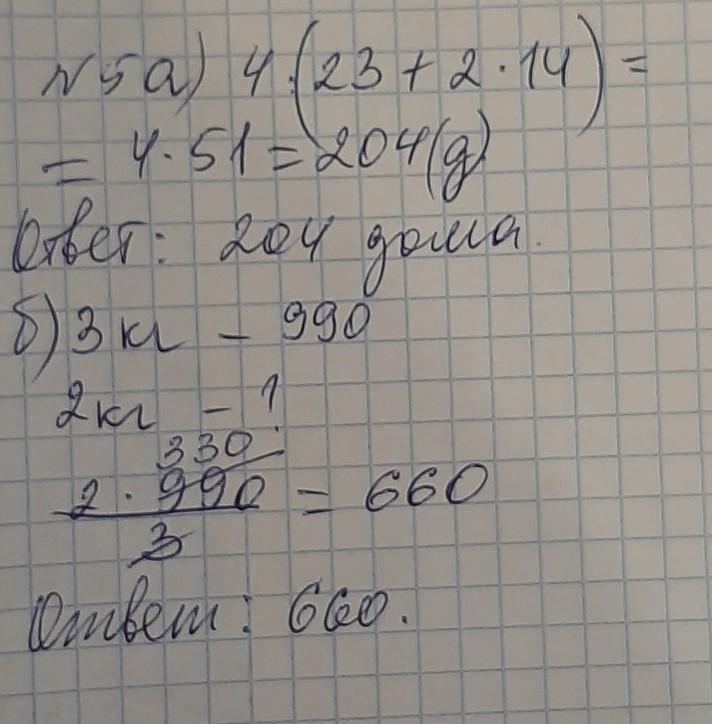 №5 а) 4·(23 + 2·14) =
= 4·51 = 204(д)
Ответ: 204 дома.
б) 3 кг – 990
2 кг – ?
330
2 · 990 = 660
3
Ответ: 660.